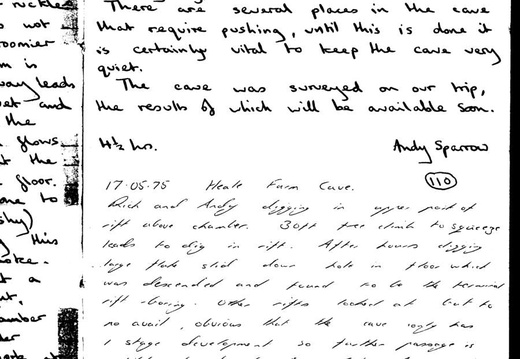 ruckle
s not
roomier
m is
way leads
et and
the
flows
t the
floor.
one to
shy)
this
oke.
t a
nt,
amber
der
There are several places in the cave
that require pushing, until this is done it
is certainly vital to keep the cave very
quiet.
The cave was surveyed on our trip,
the results of which will be available soon.
4½ hrs. Andy Sparrow
17.05.75 Heale Farm Cave. 110
Rich and Andy digging in upper part of
rift above chamber. 30ft free climb to squeeze
leads to dig in rift. After hours digging
large flake slid down hole in floor which
was descended and found to be the terminal
rift. Other rifts looked at but to
no avail, obvious that the cave only has
1 stage development so further passage is